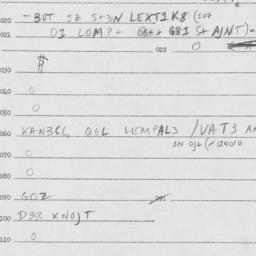 020 -BUT 2Z St3N LEXT1K8 (107
021 D1 LOMP+ G81 St AJNT)-
022 0
030 #
040 0
050 0
060 KAN3CL Q8L LEMPAL3 /VAT3 AN
1N OJL (-124010
070 0
080 0
090 GOZ
100 D38 KNOJT
110 0